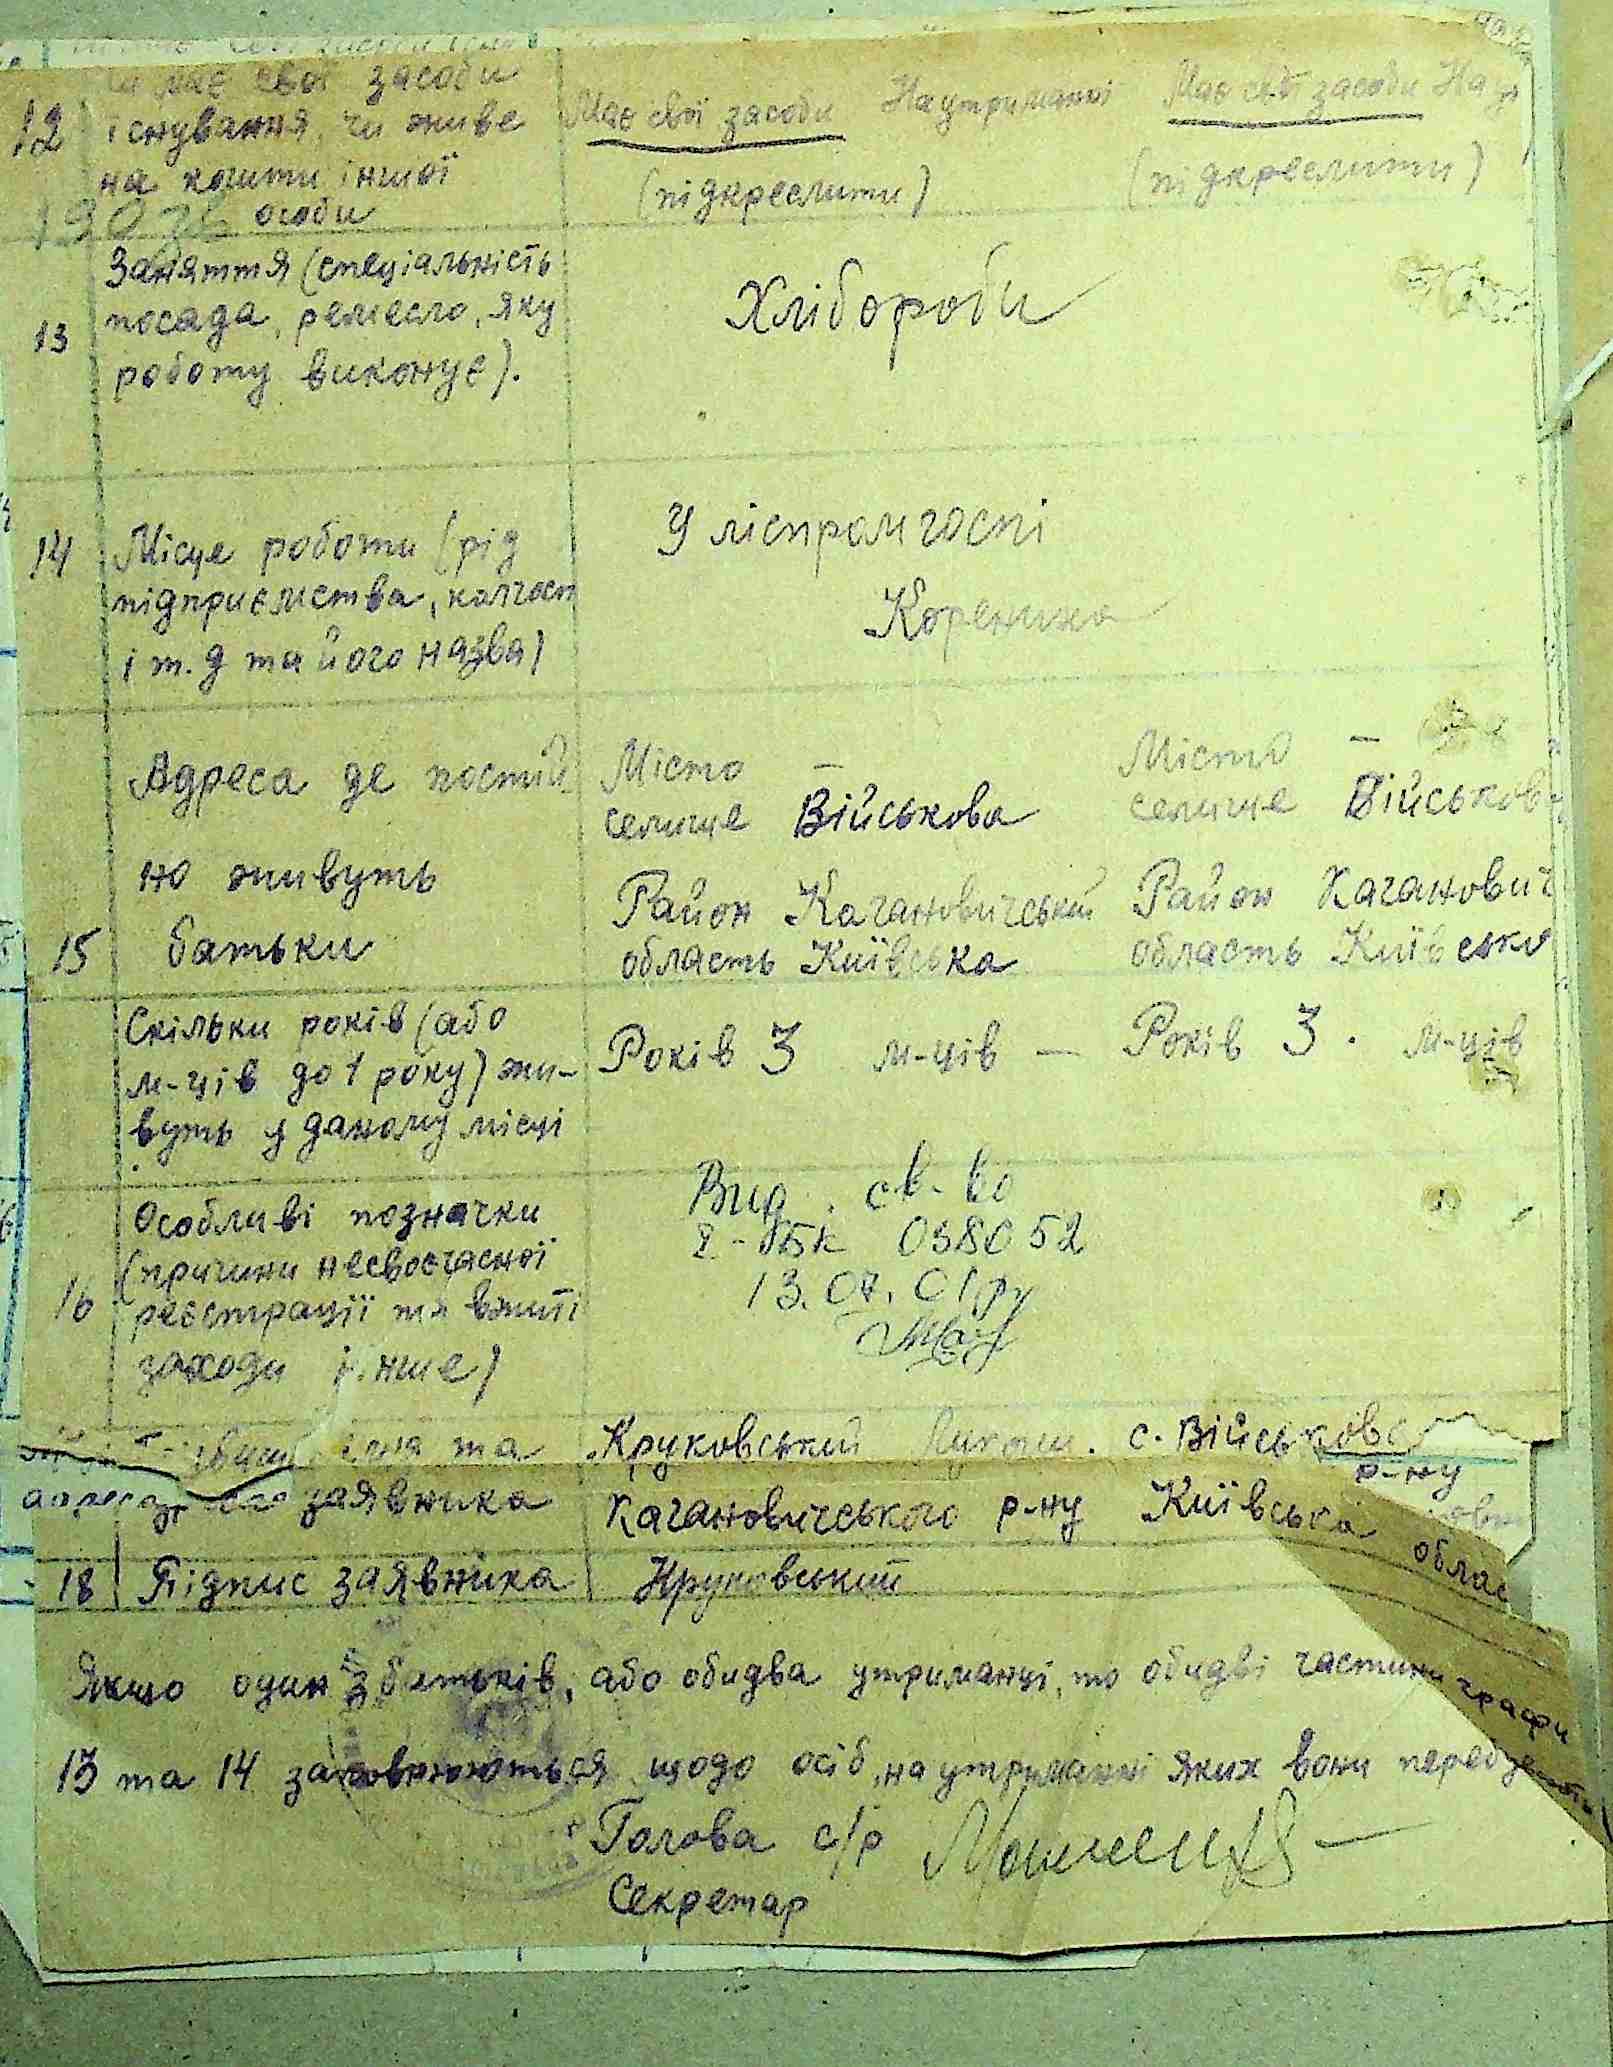 має свої засоби
12 існування, чи живе Має свої засоби На утриманні Має свої засоби На
на кошти іншої (підкреслити) (підкреслити)
особи
Заняття (спеціальність
13 посада, ремесло, яку Хлібороби
роботу виконує).
14 Місце роботи (рід У ліспромгоспі
підприємства, колгосп
і т. д та його назва)
Адреса де постій Місто — Місто —
селище Військова селище Військова
но живуть
Район Кагановичський Район Каганович
15 батьки область Київська область Київська
Скільки років (або
м-ців до 1 року) жи- Років 3 м-ців — Років 3. м-ців
вуть у даному місці
Особливі позначки Вид. св-во
(причини несвоєчасної І-БК 038052
16 реєстрації та вжиті 13.07.01р
заходи і інше)
та Круковський с. Військова
р-ну
заявника Кагановичського р-ну Київська
облас
18 Підпис заявника Круковський
Якщо один з батьків, або обидва утриманці, то обидві частини графи
13 та 14 заповнюються щодо осіб, на утриманні яких вони перебувають
Голова с/р
Секретар